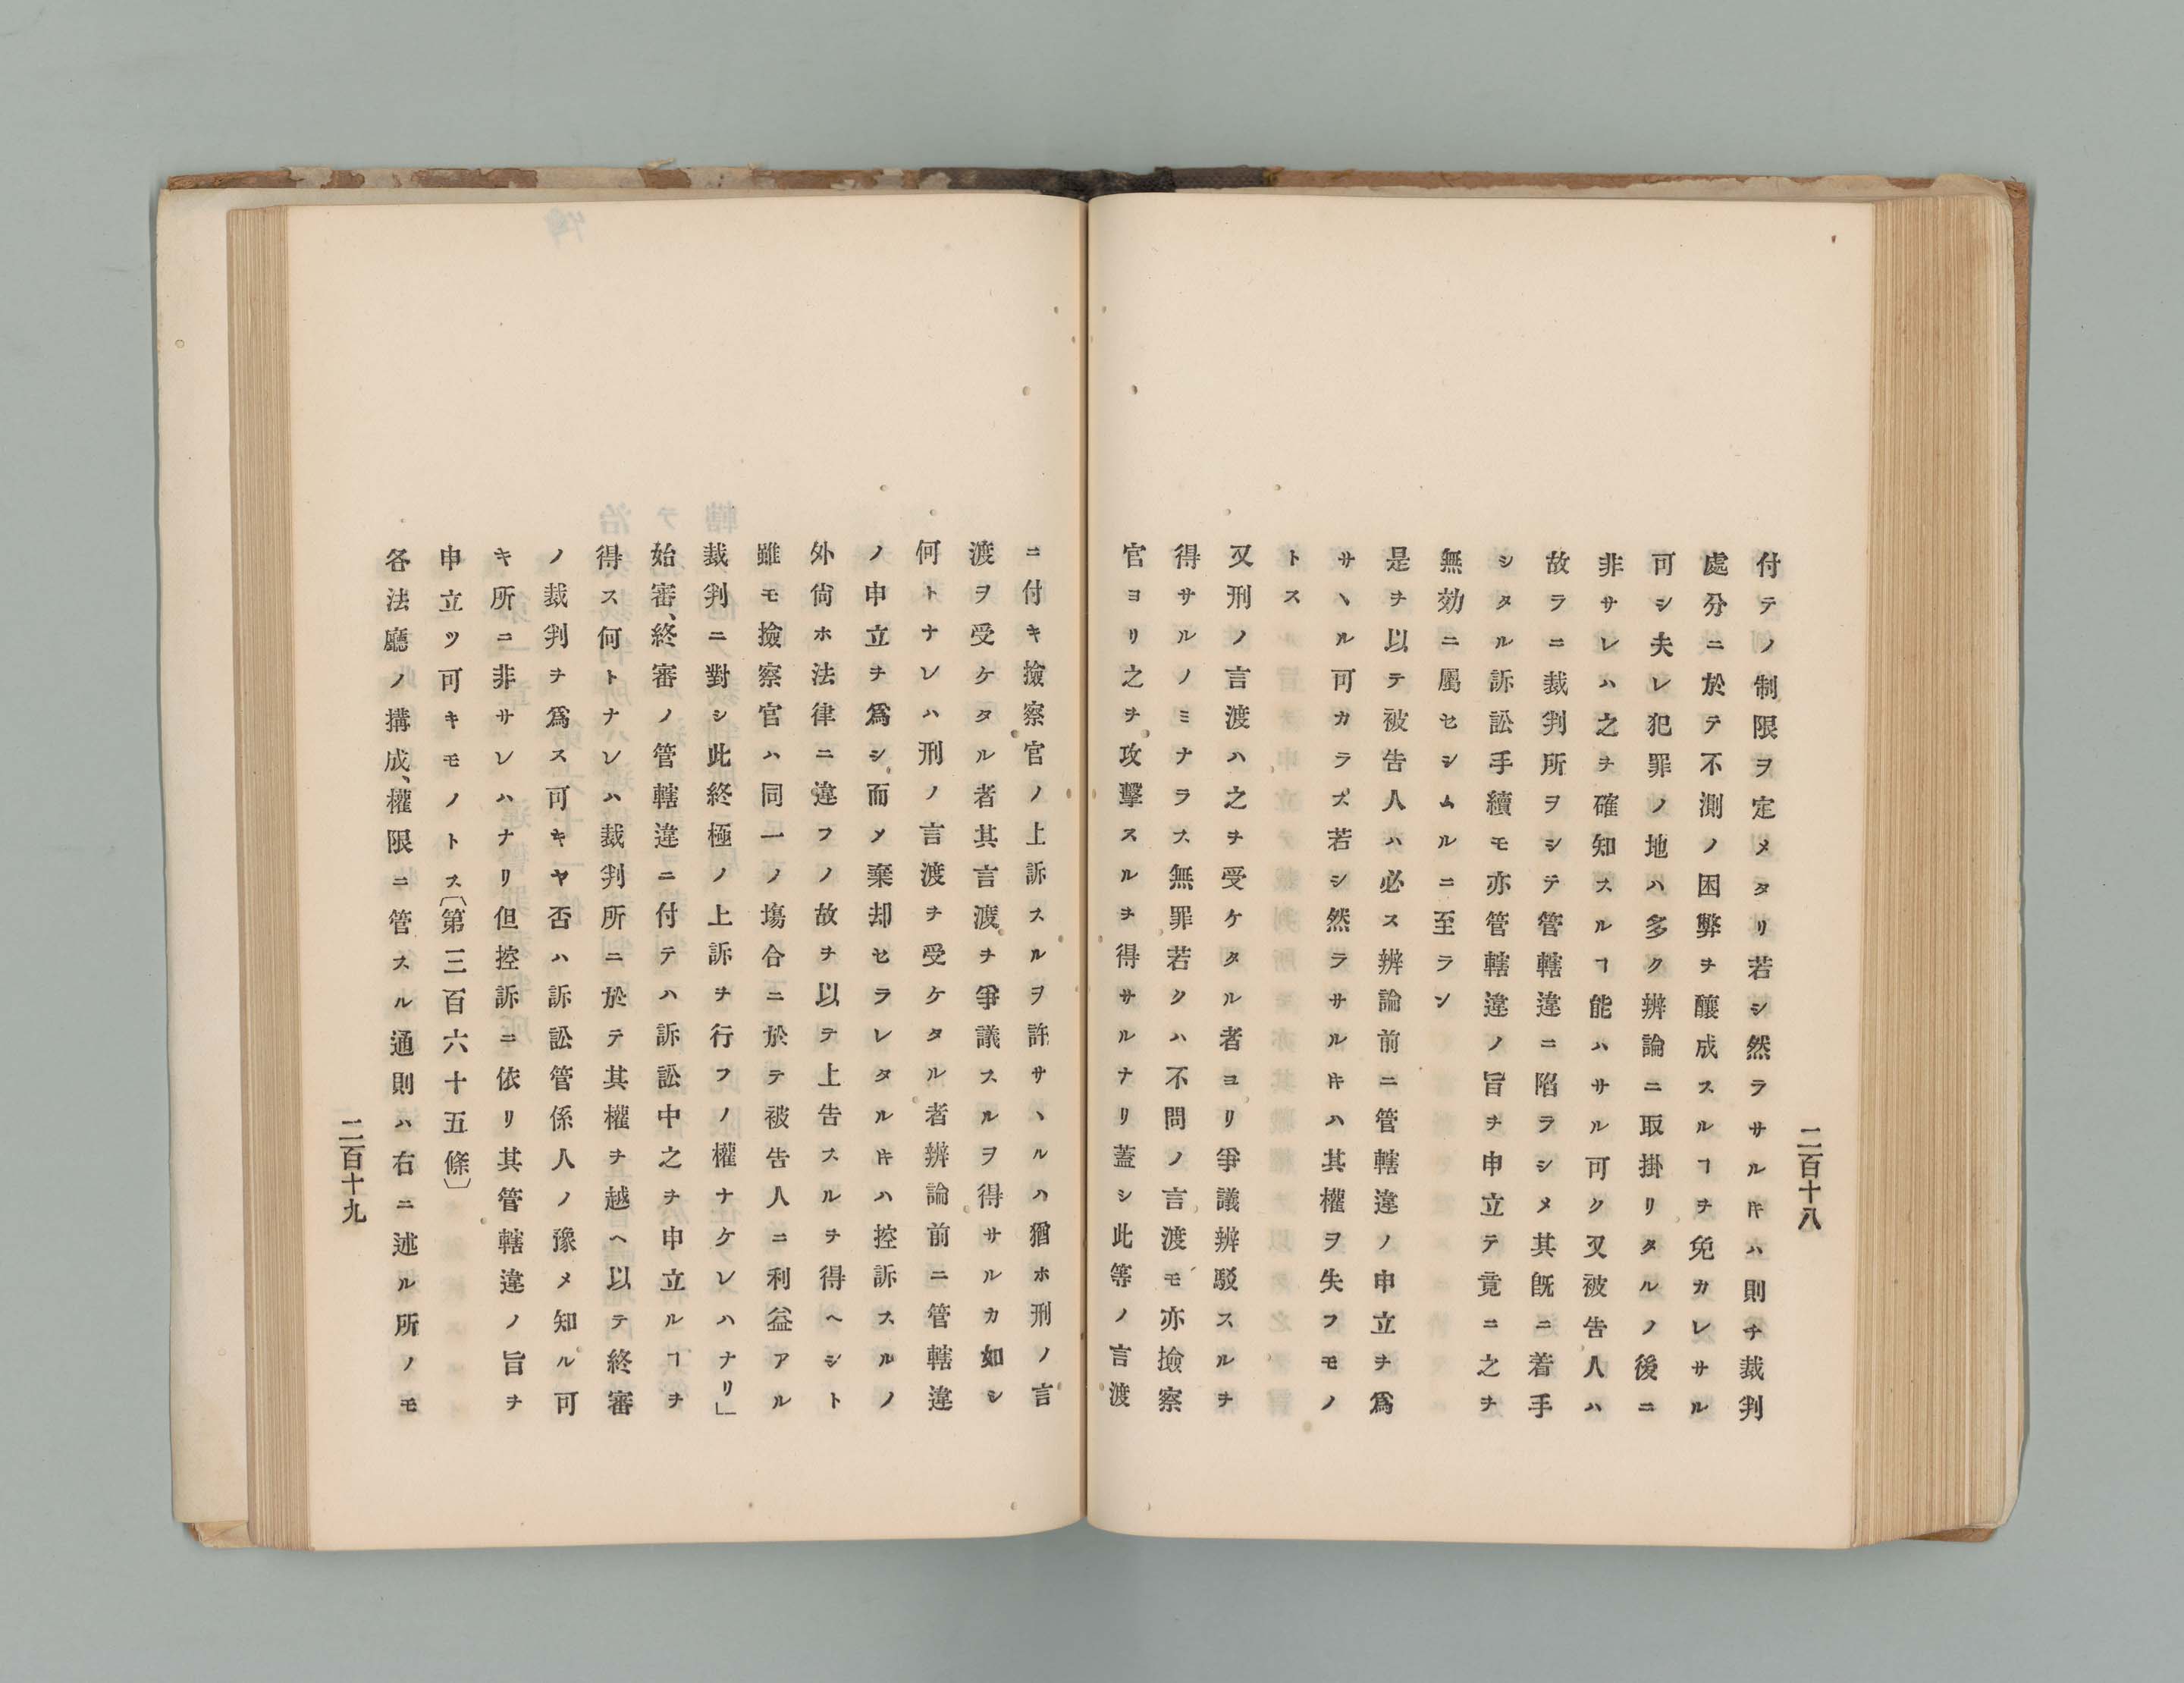 二百十八
付テノ制限ヲ定メタリ若シ然ラサルキハ則チ裁判
處分ニ於テ不測ノ困弊ヲ釀成スルヿヲ免カレサル
可シ夫レ犯罪ノ地ハ多ク辨論ニ取掛リタルノ後ニ
非サレハ之ヲ確知スルヿ能ハサル可ク又被告人ハ
故ラニ裁判所ヲシテ管轄違ニ陷ラシメ其既ニ着手
シタル訴訟手續モ亦管轄違ノ旨ヲ申立テ竟ニ之ヲ
無効ニ屬セシムルニ至ラン
是ヲ以テ被告人ハ必ス辨論前ニ管轄違ノ申立ヲ爲
サヽル可カラズ若シ然ラサルキハ其權ヲ失フモノ
トス
又刑ノ言渡ハ之ヲ受ケタル者ヨリ爭議辨駁スルヲ
得サルノミナラス無罪若クハ不問ノ言渡モ亦撿察
官ヨリ之ヲ攻擊スルヲ得サルナリ蓋シ此等ノ言渡
ニ付キ撿察官ノ上訴スルヲ許サヽルハ猶ホ刑ノ言
渡ヲ受ケタル者其言渡ヲ爭議スルヲ得サルカ如シ
何トナレハ刑ノ言渡ヲ受ケタル者辨論前ニ管轄違
ノ申立ヲ爲シ而メ棄却セラレタルキハ控訴スルノ
外尙ホ法律ニ違フノ故ヲ以テ上告スルヲ得ヘシト
雖モ撿察官ハ同一ノ塲合ニ於テ被告人ニ利益アル
裁判ニ對シ此終極ノ上訴ヲ行フノ權ナケレハナリ」
始審、終審ノ管轄違ニ付テハ訴訟中之ヲ申立ルヿヲ
得ス何トナハレハ裁判所ニ於テ其權ヲ越ヘ以テ終審
ノ裁判ヲ爲ス可キヤ否ハ訴訟管係人ノ豫メ知ル可
キ所ニ非サレハナリ但控訴ニ依リ其管轄違ノ旨ヲ
申立ツ可キモノトス〔第三百六十五條〕
各法廳ノ搆成、權限ニ管スル通則ハ右ニ述ル所ノモ
二百十九